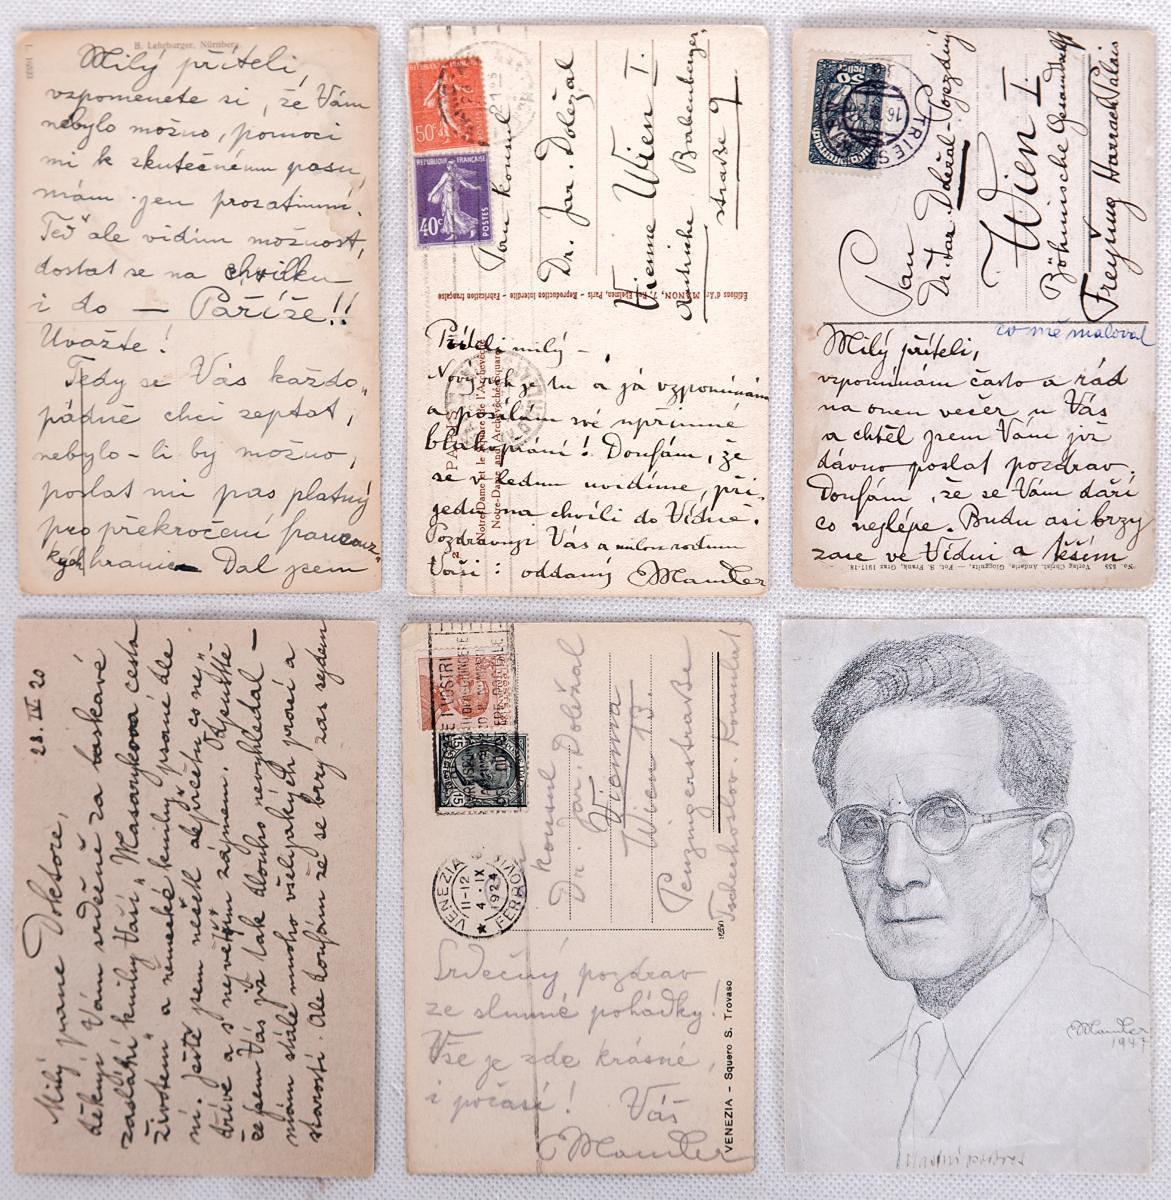 B. Lehrburger, Nürnberg
Milý příteli,
vzpomenete si, že Vám
nebylo možno, pomoci
mi k skutečnému pasu,
mám jen prozatimní.
Teď ale vidím možnost,
dostat se na chvilku
i do — Paříže!!
Uvažte!
Tedy se Vás každo„
pádně chci zeptat,
nebylo-li by možno,
poslat mi pas platný
pro překročení francouz„
kých hranic — Dal jsem
50c
REPUBLIQUE FRANÇAISE
40c
POSTES
Pan konsul
Dr. Jar. Doležal
Vienne Wien I.
Babenberger,
straße 9
Editions d'Art
Paris - Reproduction interdite - Fabrication française
PARIS
Notre-Dame et le Square de l'Archevêché
Notre-Dame and Archevêché square
Příteli milý — ,
Nový rok je tu a já vzpomínám
a posílám své upřímné
blahopřání! Doufám, že
se v ledum uvidíme, při„
jedu na chvíli do Vídně.
Pozdravuji Vás a milou rodinu
Vaši: oddaný
TRIES
Pan
Dr. Jar. Doležal
Wien I
Böhmische Gesandtschaft
Freyung Harrach Palais
co mě maloval
Milý příteli,
vzpomínám často a rád
na onen večer u Vás
a chtěl jsem Vám již
dávno poslat pozdrav.
Doufám, že se Vám daří
co nejlépe. Budu asi brzy
zase ve Vídni a těším
No. 855 Verlag Christ. Andaria, Gloggnitz. — Fot. S. Frank, Graz 1917-18.
23. IV 20
Milý pane Doktore,
děkuji Vám srdečně za laskavé
zaslání knihy Vaší „Masarykova cesta
životem" a německé knihy psané dle
ní. Ještě jsem nečetl ale přečtu co nej„
dříve a s největším zájmem. Odpusťte
že jsem Vás již tak dlouho nevyhledal —
mám stále mnoho všelijakých prací a
starostí. Ale doufám že se brzy zas sejdem
VENEZIA
11-12
4·IX
1924
FERROVIA
konsul
Dr. Jar. Doležal
Vienna
Wien 13.
Penzingerstraße
Tschechoslov. Konsulat
VENEZIA - Squero S. Trovaso
Srdečný pozdrav
ze slunné pohádky!
Vše je zde krásné,
i počasí! Váš
1947